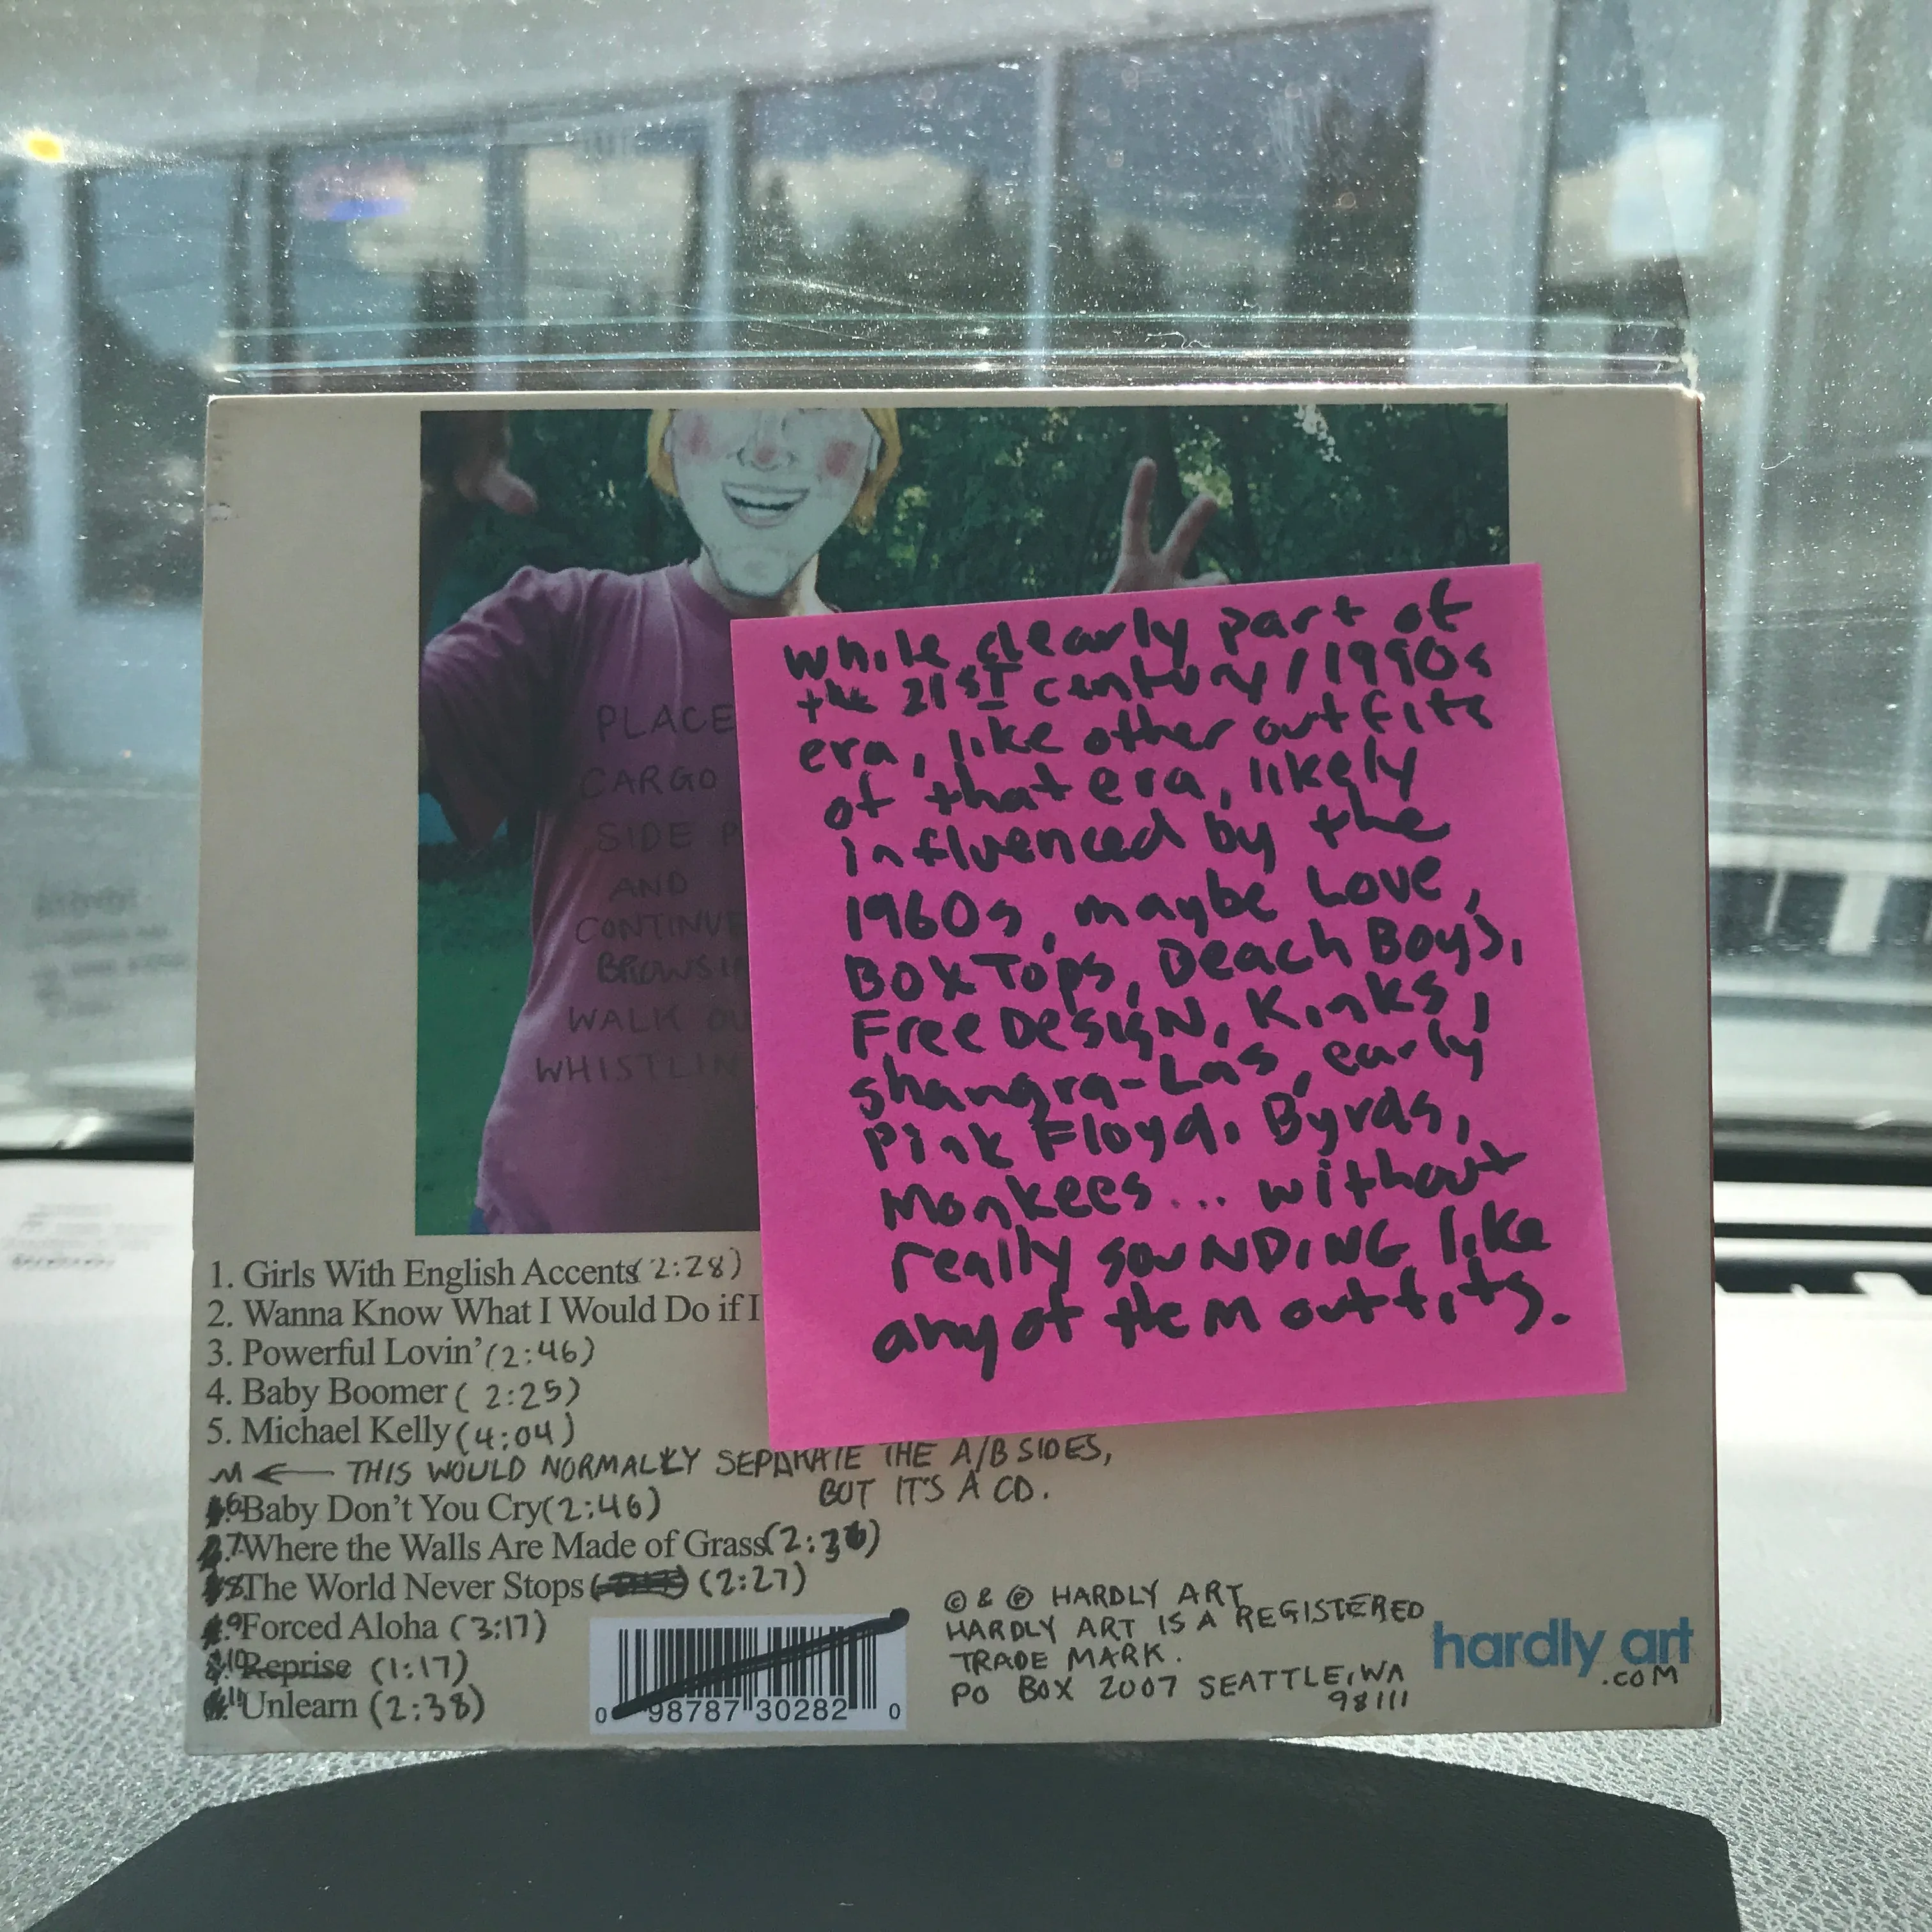 PLACE
CARGO
SIDE P
AND
CONTINUE
BROWSIN
WALK OU
WHISTLIN
while clearly part of
the 21st century/1990s
era, like other outfits
of that era, likely
influenced by the
1960s, maybe Love,
Box Tops, Beach Boys,
Free Design, Kinks,
Shangra-Las, early
Pink Floyd, Byrds,
Monkees... without
really SOUNDING like
any of them outfits.
1. Girls With English Accents (2:28)
2. Wanna Know What I Would Do if I
3. Powerful Lovin' (2:46)
4. Baby Boomer (2:25)
5. Michael Kelly (4:04)
← THIS WOULD NORMALLY SEPARATE THE A/B SIDES,
BUT IT'S A CD.
6 Baby Don't You Cry (2:46)
7 Where the Walls Are Made of Grass (2:36)
8 The World Never Stops (2:27)
9 Forced Aloha (3:17)
10 Reprise (1:17)
11 Unlearn (2:38)
0 98787 30282 0
© & ℗ HARDLY ART
HARDLY ART IS A REGISTERED
TRADE MARK.
PO BOX 2007 SEATTLE, WA
98111
hardly art
.COM